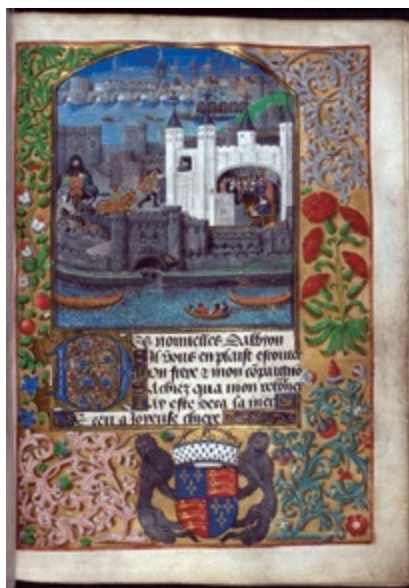 Des nouuelles dalbyon
Sil vous en plaist escouter
Mon frere & mon cõpaignõ
Sachiez qua mon retorner
Jay este deca la mer
Receu a Joyeuse chiere